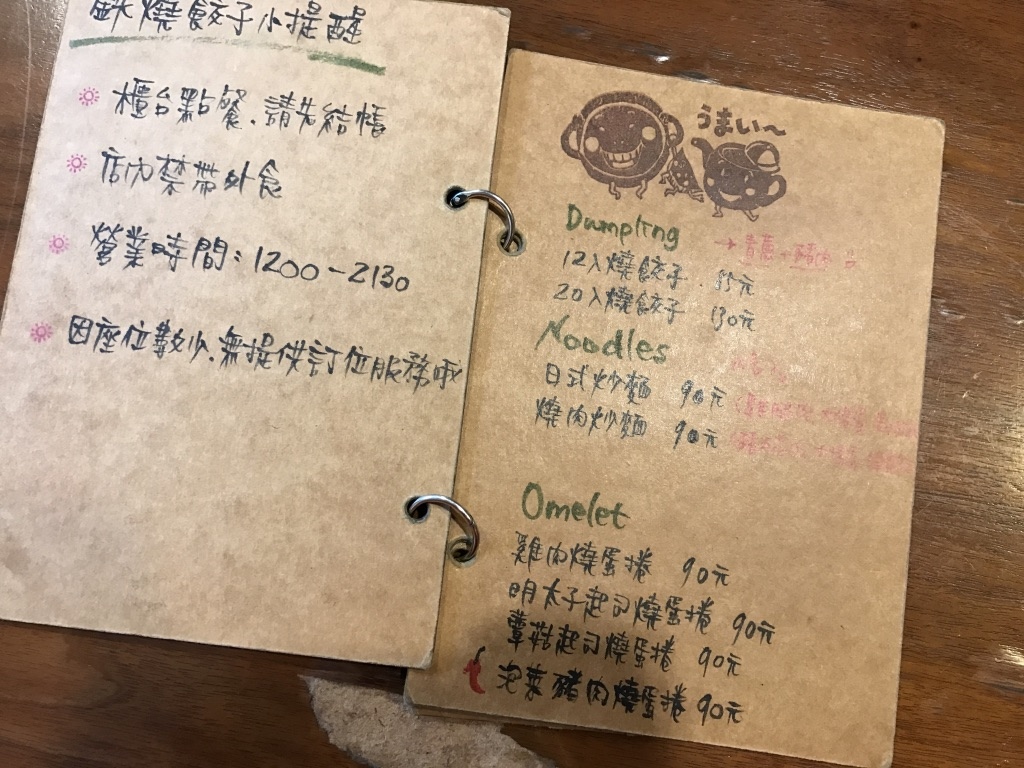 燒餃子小提醒
櫃台點餐.請先結帳
店內禁帶外食
營業時間:1200-2130
因座位數少.無提供訂位服務哦
うまい〜
Dumpling
12入燒餃子.85元
20入燒餃子 130元
Noodles
日式炒麵 90元
燒肉炒麵 90元
Omelet
雞肉燒蛋捲 90元
明太子起司燒蛋捲 90元
蕈菇起司燒蛋捲 90元
泡菜豬肉燒蛋捲 90元